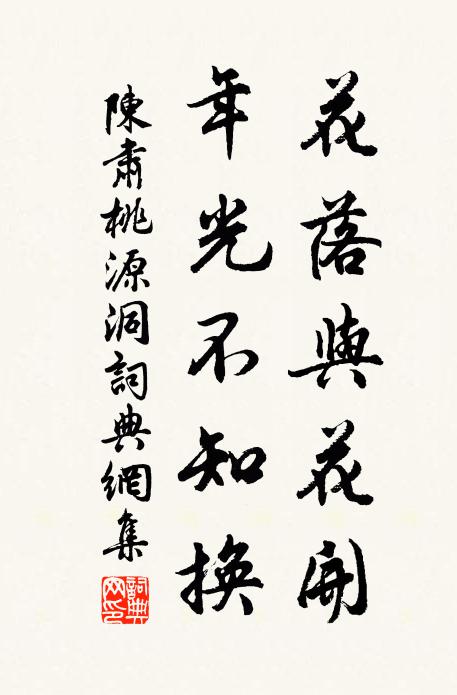 花落與花開
年光不知換
陳肅桃源洞詞典網集
詞典网印